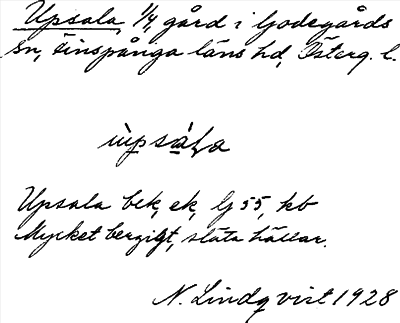 Upsala, 1/4 gård i Godegårds
sn, Finspånga läns hd, Österg. l.
Upsala bek, ek, bj 55, kb
Mycket bergigt, släta hällar.
N. Lindqvist 1928